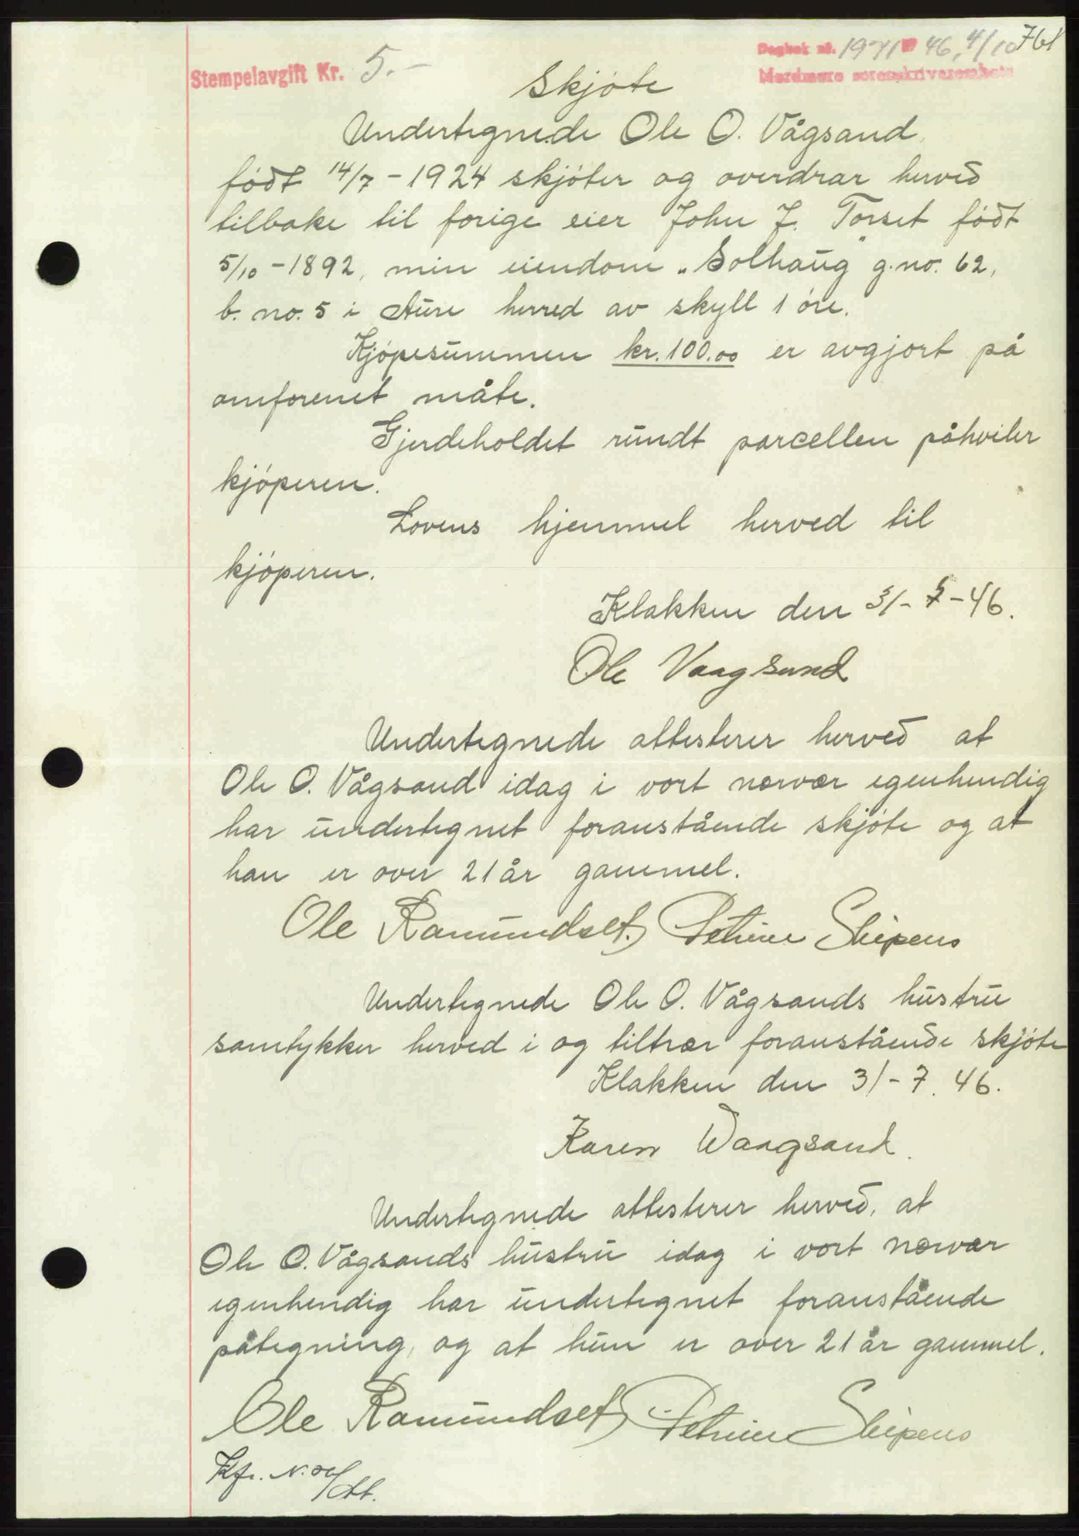 Dagbok nr. 1971 46, 4/10 761
Stempelavgift Kr. 5.-
Nordmøre sorenskriverembete
Skjøte
Undertegnede Ole O. Vågsand,
født 14/7 - 1924 skjøter og overdrar herved
tilbake til forige eier John J. Torset født
5/10 - 1892, min eiendom "Solhaug" g.no. 62,
b. no. 5 i Aure herred av skyll 1 øre.
Kjøpesummen kr. 100.00 er avgjort på
omforenet måte.
Gjerdeholdet rundt parcellen påhviler
kjøperen.
Lovens hjemmel herved til
kjøperen.
Klakken den 31 - 7 - 46.
Ole Vaagsand
Undertegnede attesterer herved at
Ole O. Vågsand idag i vort nærvær egenhendig
har undertegnet foranstående skjøte og at
han er over 21 år gammel.
Ole Ramundset. Petrine Skipenes
Undertegnede Ole O. Vågsands hustru
samtykker herved i og tiltrær foranstående skjøte
Klakken den 31 - 7. 46.
Karen Waagsand.
Undertegnede attesterer herved, at
Ole O. Vågsands hustru idag i vort nærvær
egenhendig har undertegnet foranstående
påtegning, og at hun er over 21 år gammel.
Ole Ramundset Petrine Skipenes
Kfr.